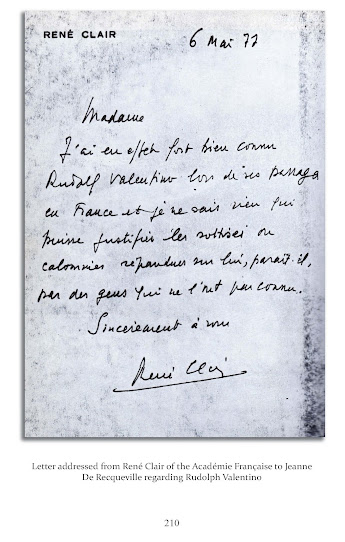 RENÉ CLAIR
6 Mai 77
Madame
J'ai en effet fort bien connu
Rudolf Valentino lors de ses passages
en France et je ne sais rien qui
puisse justifier les sottises ou
calomnies répandues sur lui, paraît-il,
par des gens qui ne l'ont pas connu.
Sincèrement à vous
René Clair
Letter addressed from René Clair of the Académie Française to Jeanne
De Recqueville regarding Rudolph Valentino
210